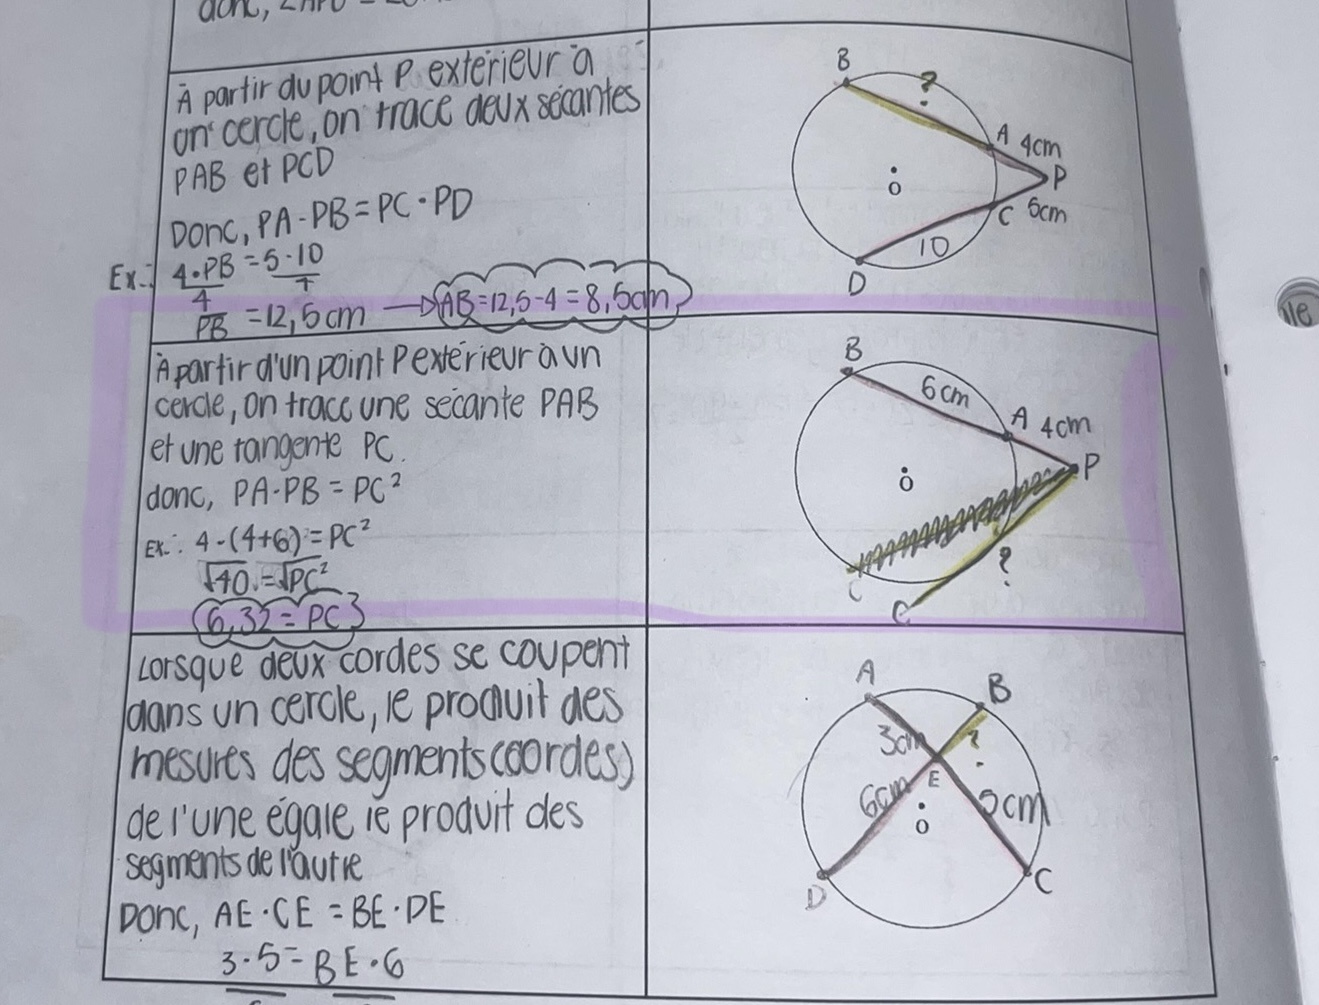 donc,
À partir du point P extérieur à
un cercle, on trace deux sécantes
PAB et PCD
Donc, PA·PB = PC·PD
Ex.: 4·PB = 5·10
4 4
PB = 12,5cm → AB = 12,5-4 = 8,5cm
B
?
A 4cm
P
O
C 5cm
10
D
À partir d'un point P extérieur à un
cercle, on trace une sécante PAB
et une tangente PC.
donc, PA·PB = PC²
Ex.: 4·(4+6) = PC²
√40 = √PC²
6,32 = PC
B
6cm
A 4cm
P
O
?
C
C
Lorsque deux cordes se coupent
dans un cercle, le produit des
mesures des segments (cordes)
de l'une égale le produit des
segments de l'autre
Donc, AE·CE = BE·DE
3·5 = BE·6
A
B
3cm
?
E
6cm
5cm
O
D
C
lle